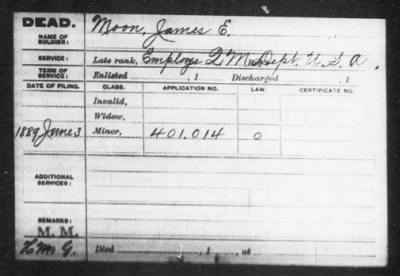 DEAD.
NAME OF SOLDIER: Moon, James E.
SERVICE: Late rank, Employe Q.M. Dept. U.S.A.
TERM OF SERVICE: Enlisted , 1 Discharged , 1
DATE OF FILING. CLASS. APPLICATION NO. LAW. CERTIFICATE NO.
Invalid,
Widow,
1889 June 3 Minor, 401.014 0
ADDITIONAL SERVICES:
REMARKS:
M. M.
Died , 1 , at